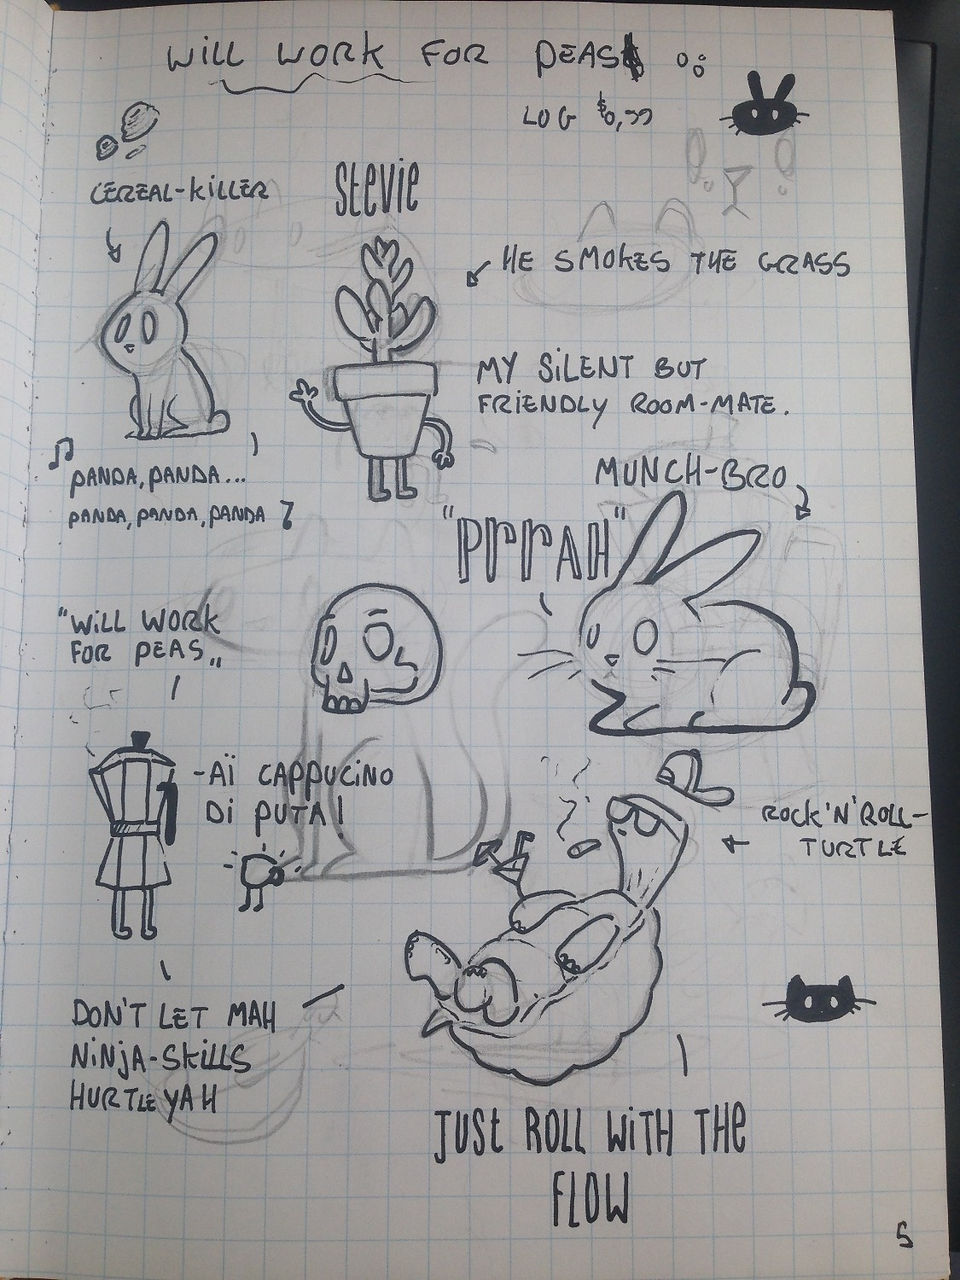 WILL WORK FOR PEAS
LOG $0,99
CEREAL-KILLER
STEVIE
HE SMOKES THE GRASS
MY SILENT BUT
FRIENDLY ROOM-MATE.
PANDA, PANDA...
PANDA, PANDA, PANDA
MUNCH-BRO
"PrrrAH"
"WILL WORK
FOR PEAS„
-AÏ CAPPUCINO
Di PUTA!
ROCK'N'ROLL-
TURTLE
DON'T LET MAH
NINJA-SKILLS
HURTLE YAH
JUST ROLL WITH THE
FLOW
5